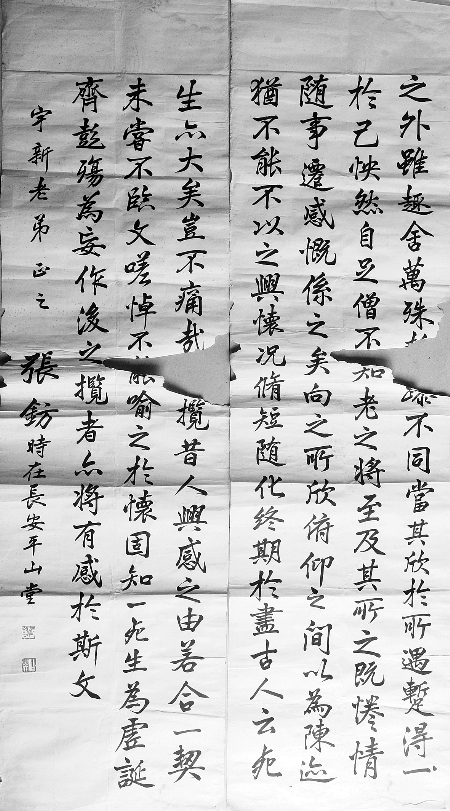 之外雖趣舍萬殊不同當其欣於所遇暫得一
於己怏然自足僧不知老之將至及其所之既惓情
随事遷感慨係之矣向之所欣俯仰之間以為陳迹
猶不能不以之興懷况脩短随化終期於盡古人云死
生亦大矣豈不痛哉攬昔人興感之由若合一契
未嘗不臨文嗟悼不能喻之於懷固知一死生為虛誕
齊彭殤為妄作後之攬者亦將有感於斯文
宇新老弟 正之
張鈁時在長安平山堂